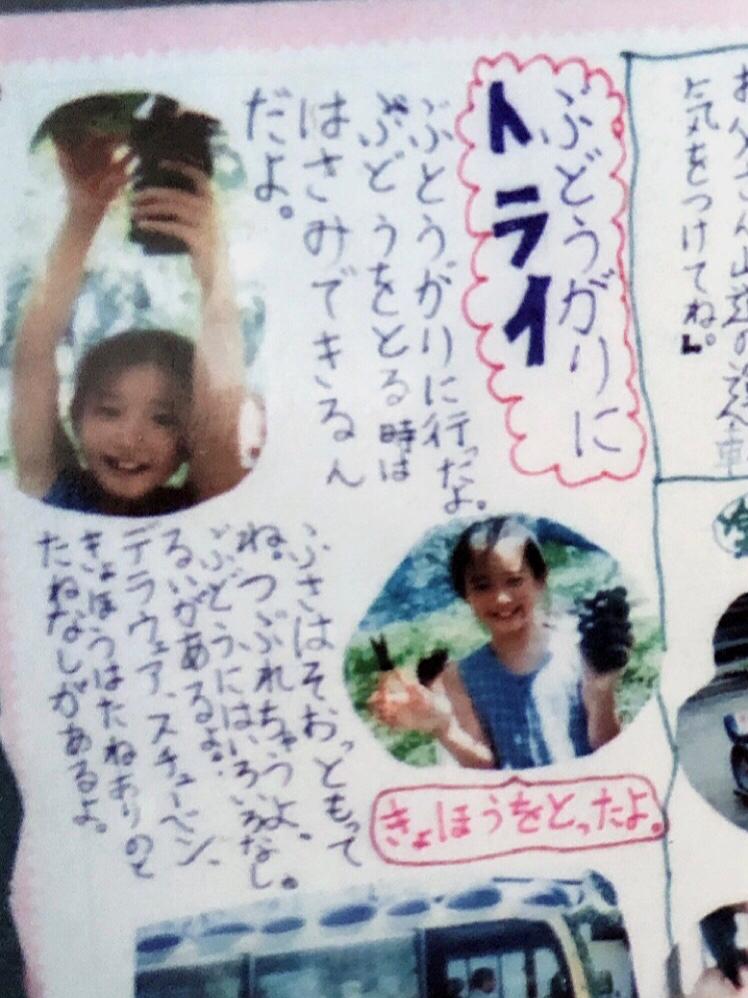 お父さん山道の
気をつけてね」
ぶどうがりに
トライ
ぶとうがりに行ったよ。
ぶどうをとる時は
はさみできるん
だよ。
ふさはそおっともって
ね。つぶれちゃうよ。
ぶどうにはいろいろなし。
るいがあるよ。
デラウェア、スチューベン、
きょほうはたねありのと
たねなしがあるよ。
きょほうをとったよ。